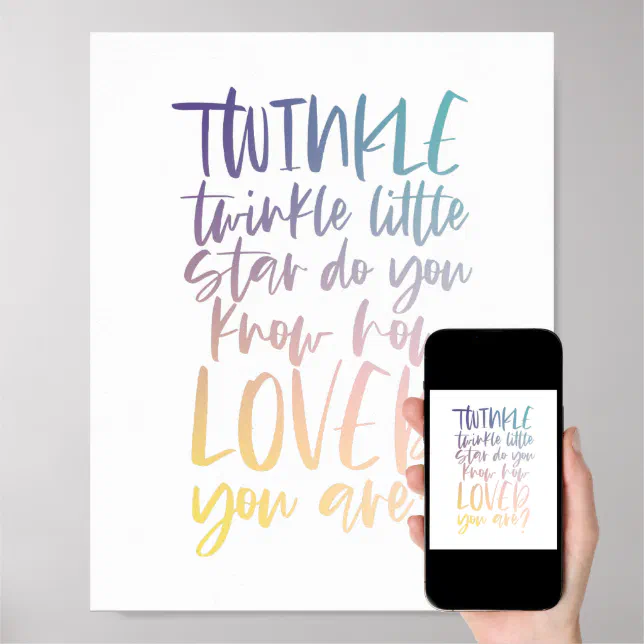 TWINKLE
twinkle little
star do you
know how
LOVED
you are?
TWINKLE
twinkle little
star do you
know how
LOVED
you are?